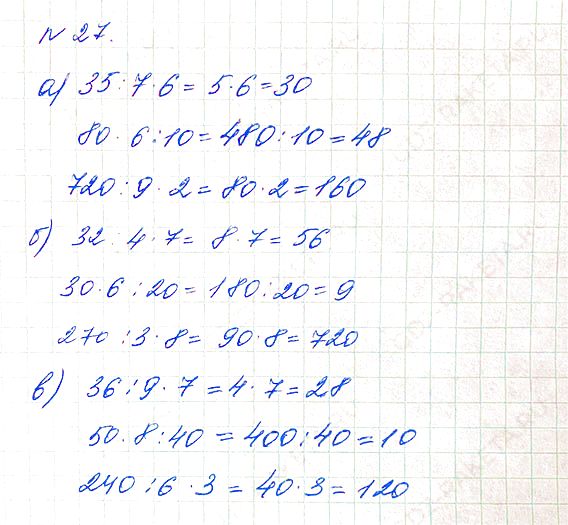 № 27.
а) 35:7·6 = 5·6 = 30
80·6:10 = 480:10 = 48
720:9·2 = 80·2 = 160
б) 32:4·7 = 8·7 = 56
30·6:20 = 180:20 = 9
270:3·8 = 90·8 = 720
в) 36:9·7 = 4·7 = 28
50·8:40 = 400:40 = 10
240:6·3 = 40·3 = 120